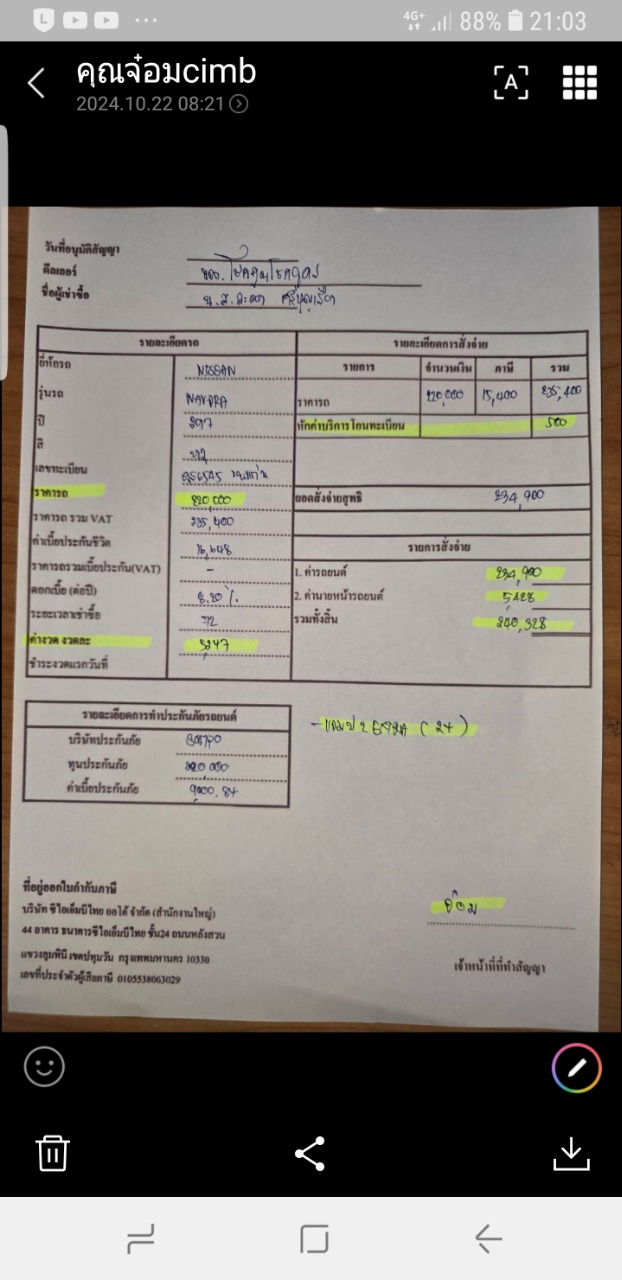 4G+ 88% 21:03
คุณจ๋อมcimb
2024.10.22 08:21
วันที่อนุมัติสัญญา
ดีลเลอร์
ชื่อผู้เช่าซื้อ น.ส.
รายละเอียดรถ
ยี่ห้อรถ NISSAN
รุ่นรถ NAVARA
ปี
สี
เลขทะเบียน
ราคารถ 220,000
ราคารถ รวม VAT 235,400
ค่าเบี้ยประกันชีวิต 16,648
ราคารถรวมเบี้ยประกัน(VAT) -
ดอกเบี้ย (ต่อปี) 8.20 %
ระยะเวลาเช่าซื้อ 72
ค่างวด งวดละ
ชำระงวดแรกวันที่
รายละเอียดการสั่งจ่าย
รายการ จำนวนเงิน ภาษี รวม
ราคารถ 220,000 15,400 235,400
หักค่าบริการโอนทะเบียน 500
ยอดสั่งจ่ายสุทธิ 234,900
รายการสั่งจ่าย
1. ค่ารถยนต์ 234,900
2. ค่านายหน้ารถยนต์ 5,428
รวมทั้งสิ้น 240,328
รายละเอียดการทำประกันภัยรถยนต์
บริษัทประกันภัย
ทุนประกันภัย
ค่าเบี้ยประกันภัย
ที่อยู่ออกใบกำกับภาษี
บริษัท ซีไอเอ็มบีไทย ออโต้ จำกัด (สำนักงานใหญ่)
44 อาคาร ธนาคารซีไอเอ็มบีไทย ชั้น24 ถนนหลังสวน
แขวงลุมพินี เขตปทุมวัน กรุงเทพมหานคร 10330
เลขที่ประจำตัวผู้เสียภาษี 0105538063029
จ๋อม
เจ้าหน้าที่ที่ทำสัญญา